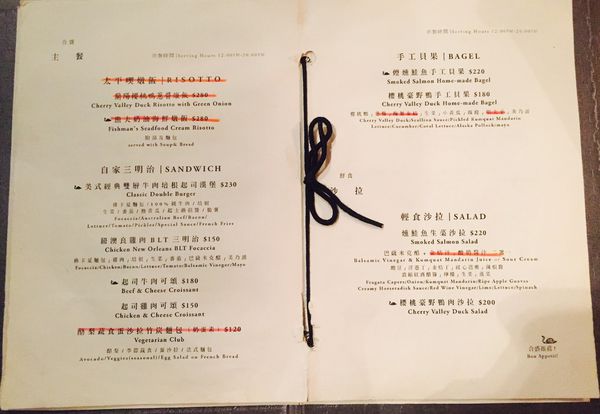 合盛
主 餐
供餐時間 | Serving Hours 12:00PM-20:00PM
太平喫燉飯 | RISOTTO
$280
Cherry Valley Duck Risotto with Green Onion
漁夫奶油海鮮燉飯 $280
Fishman's Seadfood Cream Risotto
附湯及麵包
served with Soup& Bread
自家三明治 | SANDWICH
美式經典雙層牛肉培根起司漢堡 $230
Classic Double Burger
佛卡夏麵包/100%純牛肉/培根
生菜/番茄/酸黃瓜/起士/脆薯
Focaccia/Australian Beef/Bacon/
Lettuce/Tomato/Pickles/Special Sauce/French Fries
紐澳良雞肉BLT三明治 $150
Chicken New Orleans BLT Focaccia
佛卡夏麵包/雞肉/培根/生菜/番茄/巴薩米克醋/美乃滋
Focaccia/Chicken/Bacon/Lettuce/Tomato/Balsamic Vinegar/Mayo
起司牛肉可頌 $180
Beef & Cheese Croissant
起司雞肉可頌 $150
Chicken & Cheese Croissant
酪梨蔬食蛋沙拉竹炭麵包 (奶蛋素) $120
Vegetarian Club
酪梨/季節蔬食/蛋沙拉/法式麵包
Avocado/Veggies(seasonal)/Egg Salad on French Bread
輕食
沙 拉
供餐時間 | Serving Hours 12:00PM-20:00PM
手工貝果 | BAGEL
煙燻鮭魚手工貝果 $220
Smoked Salmon Home-made Bagel
櫻桃豪野鴨手工貝果 $180
Cherry Valley Duck Home-made Bagel
Cherry Valley Duck/Scallion Sauce/Pickled Kumquat Mandarin
Lettuce/Cucumber/Coral Lettuce/Alaska Pollock/mayo
輕食沙拉 | SALAD
燻鮭魚生菜沙拉 $220
Smoked Salmon Salad
巴薩米克醋
Balsamic Vinegar & Kumquat Mandarin Juice or Sour Cream
Frugata Capers/Onion/Kumquat Mandarin/Ripe Apple Guavas
Creamy Horseradish Sauce/Red Wine Vinegar/Lime/Lettuce/Spinach
櫻桃豪野鴨肉沙拉 $200
Cherry Valley Duck Salad
合盛推薦!
Bon Appetit!